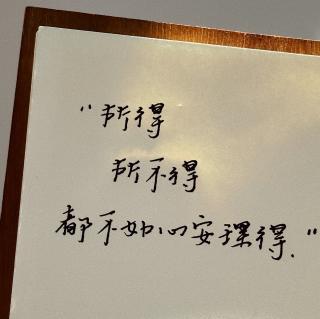 “所得
所不得
都不如心安理得.”